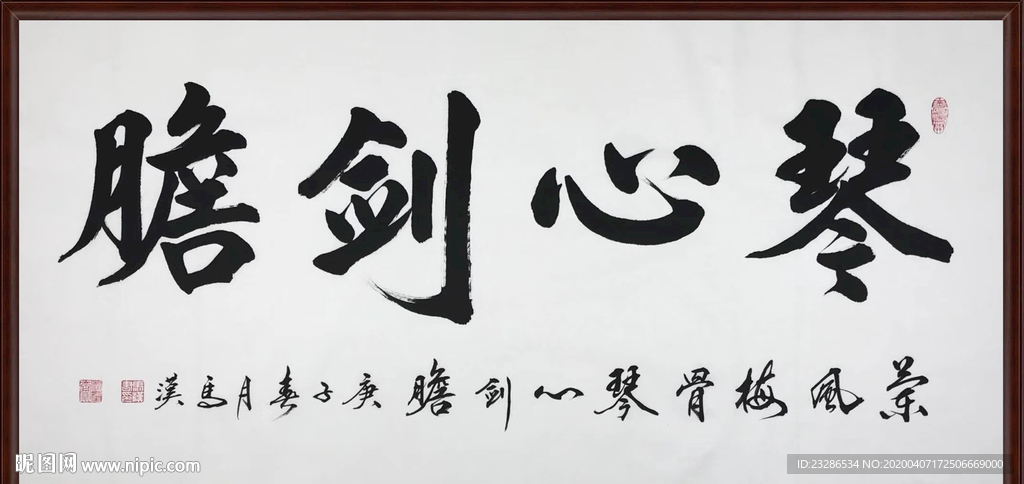 琴心剑膽
蘭風梅骨琴心剑膽庚子春月馬漢
昵图网 www.nipic.com
ID:23286534 NO:20200407172506669000